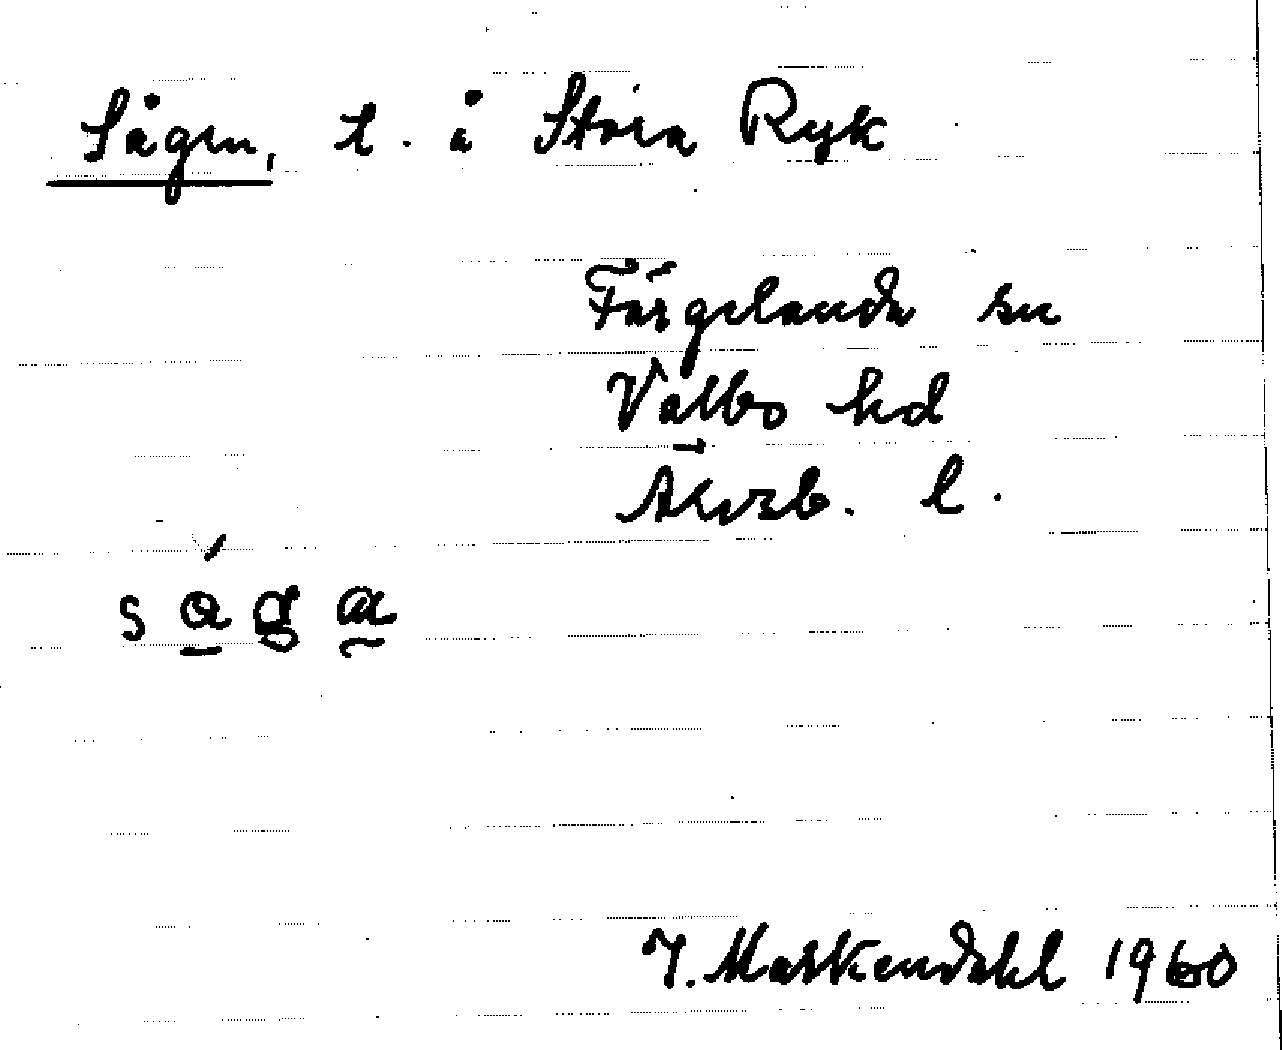 Sågen, t. å Stora Ryk
Färgelanda sn
Valbo hd
Älvsb. l.
J. Markendahl 1960